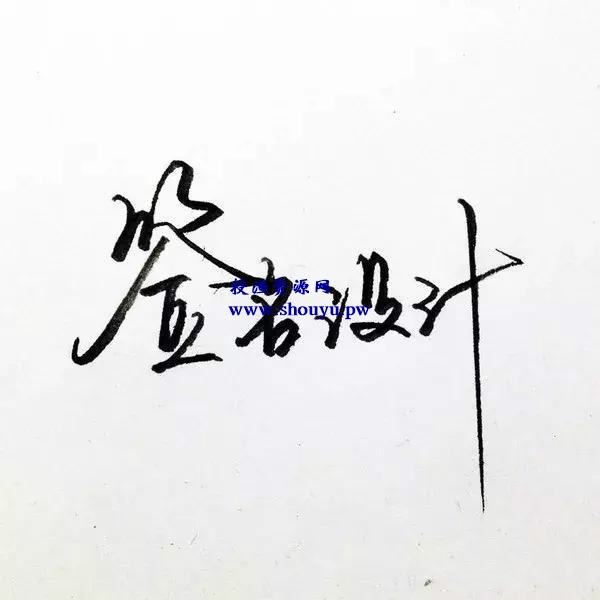 签名设计
授渔资源网
www.shouyu.pw